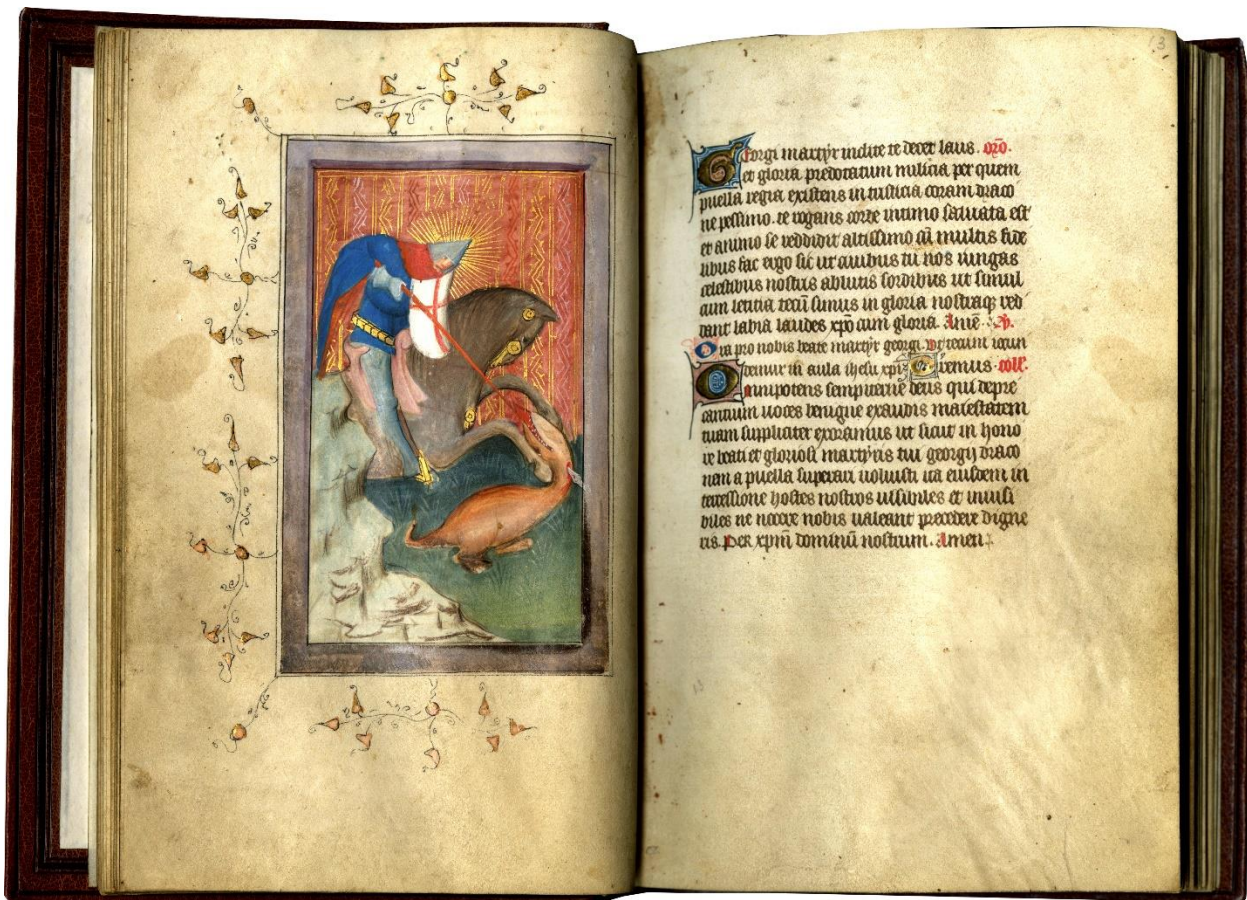 Georgi martyr inclite te decet laus. oro.
et gloria predotatum milicia per quem
puella regia existens in tristicia coram draco
ne pessimo. te rogans corde intimo saluata est
et animo se reddidit altissimo cu multis fide
libus fac ergo sic ut ciuibus tu nos iungas
celestibus nostris ablutis sordibus ut simul
cum leticia tecu simus in gloria nostraq red
dant labia laudes xpo cum gloria. Ame. v.
Ora pro nobis beate martyr georgi. vt tecum iocun
demur in aula ihesu xpi. Oremus. coll.
Omnipotens sempiterne deus qui depre
cantium uoces benigne exaudis maiestatem
tuam suppliciter exoramus ut sicut in hono
re beati et gloriosi martyris tui georgij draco
nem a puella superari uoluisti ita eiusdem in
tercessione hostes nostros uisibiles et inuisi
biles ne nocere nobis ualeant precedere digne
ris. Per xpm dominu nostrum. Amen